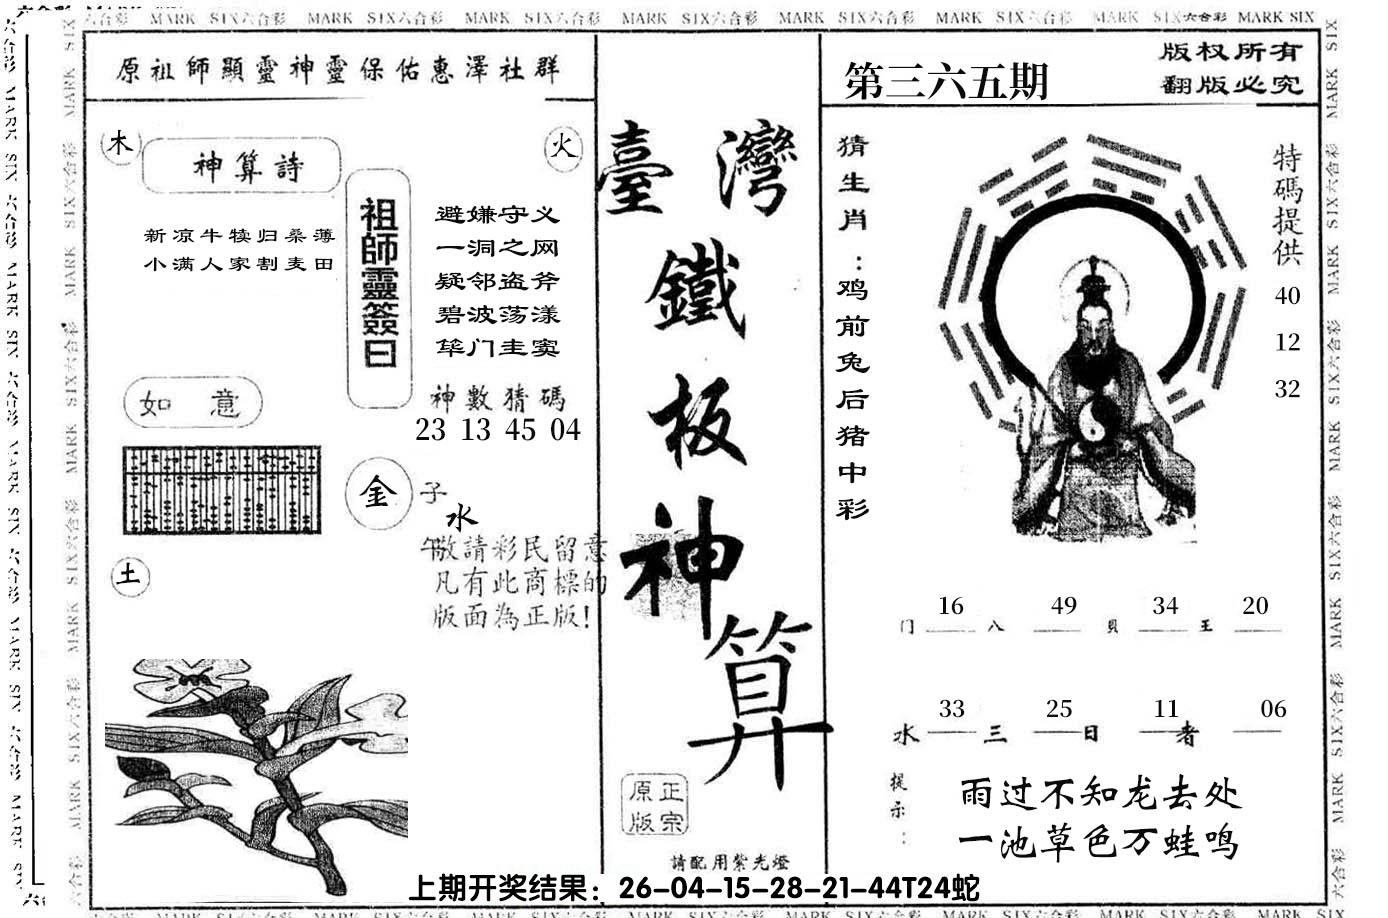 MARK SIX六合彩 MARK SIX六合彩 MARK SIX六合彩 MARK SIX六合彩 MARK SIX六合彩 MARK SIX六合彩 MARK SIX六合彩 MARK SIX
原祖師顯靈神靈保佑惠澤社群
木
神算詩
火
新凉牛犊归桑薄
小满人家割麦田
祖師靈簽曰
避嫌守义
一洞之网
疑邻盗斧
碧波荡漾
筚门圭窦
神數猜碼
23 13 45 04
如 意
金
子
水
午
敬請彩民留意
凡有此商標的
版面為正版!
土
臺灣
鐵
板
神
算
原正
版宗
請配用紫光燈
第三六五期
版权所有
翻版必究
猜生肖:鸡前兔后猪中彩
特碼提供
40
12
32
16 49 34 20
门 八 貝 王
33 25 11 06
水 三 日 者
提示:
雨过不知龙去处
一池草色万蛙鸣
上期开奖结果：26-04-15-28-21-44T24蛇